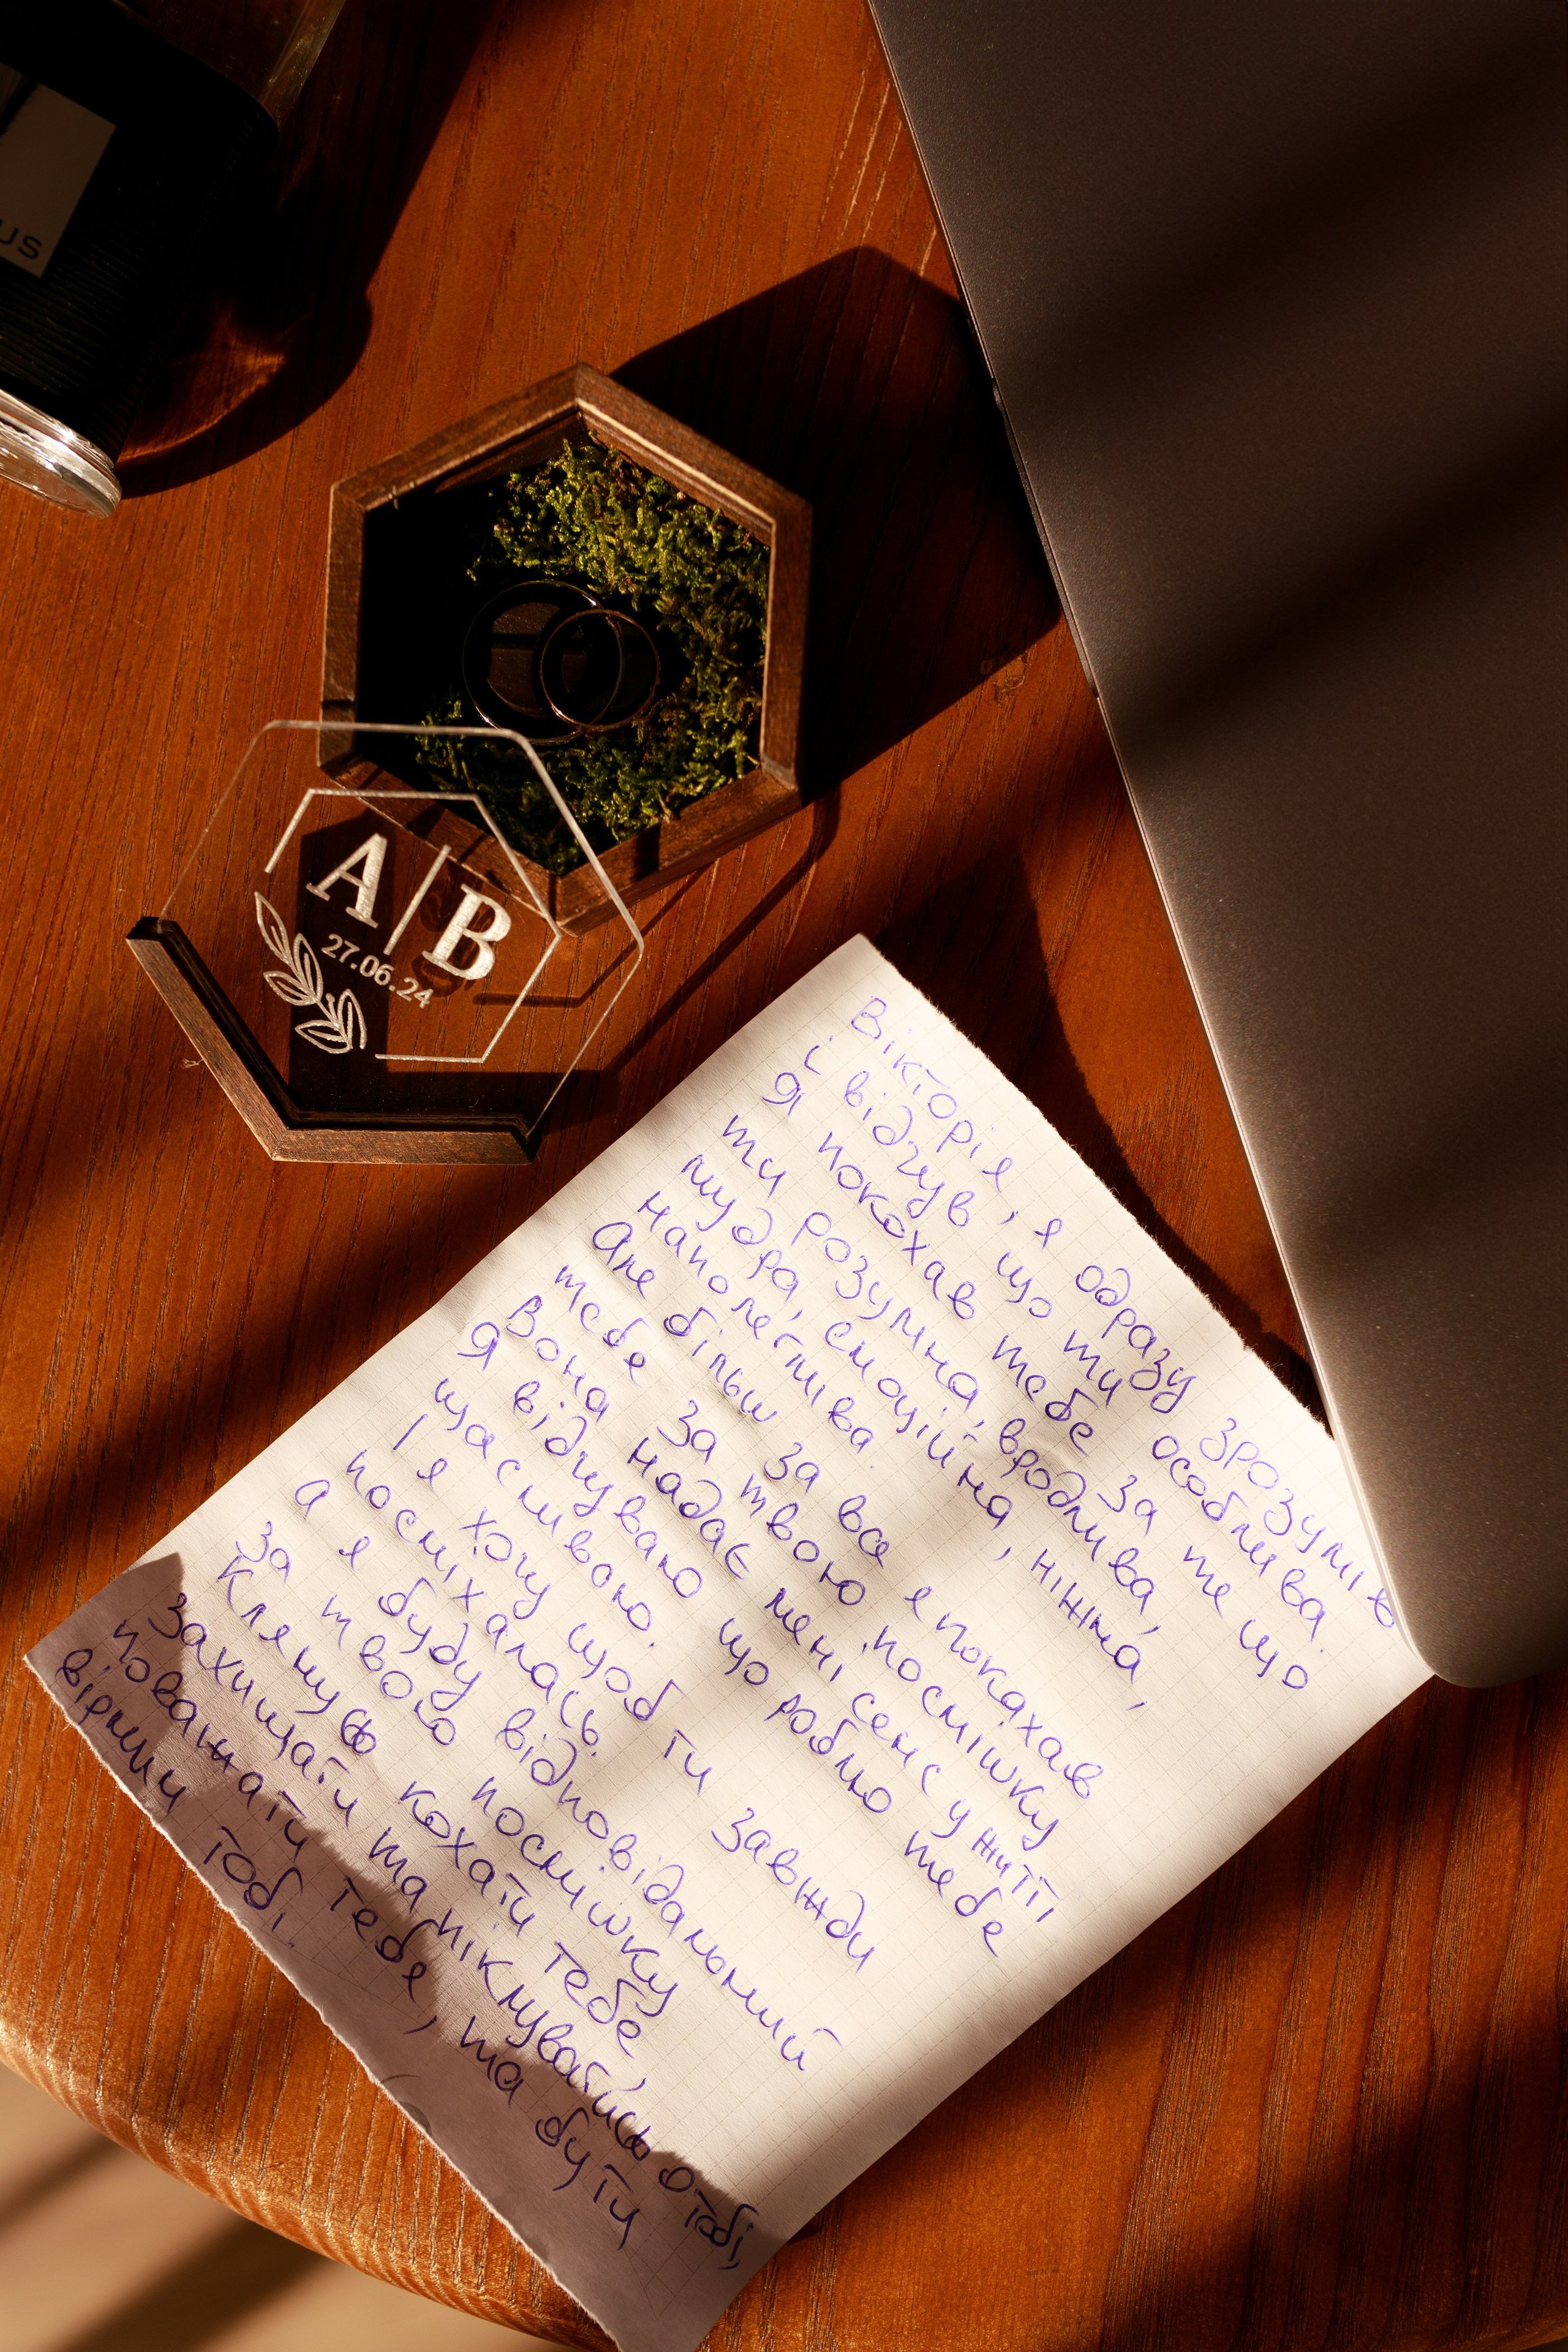 us
А|В
27.06.24
Вікторія, я одразу зрозумів
і відчув, що ти особлива.
Я покохав тебе за те що
ти розумна, вродлива,
мудра, емоційна, ніжна,
наполеглива.
Але більш за все я покахав
тебе за твою посмішку
Вона надає мені сенс у житті
Я відчуваю що роблю тебе
щасливою.
І я хочу щоб ти завжди
посміхалась.
А я буду відповідальний
за твою посмішку
Клянусь кохати тебе,
захищати та піклуватись о тобі,
поважати тебе, та бути
вірним тобі.